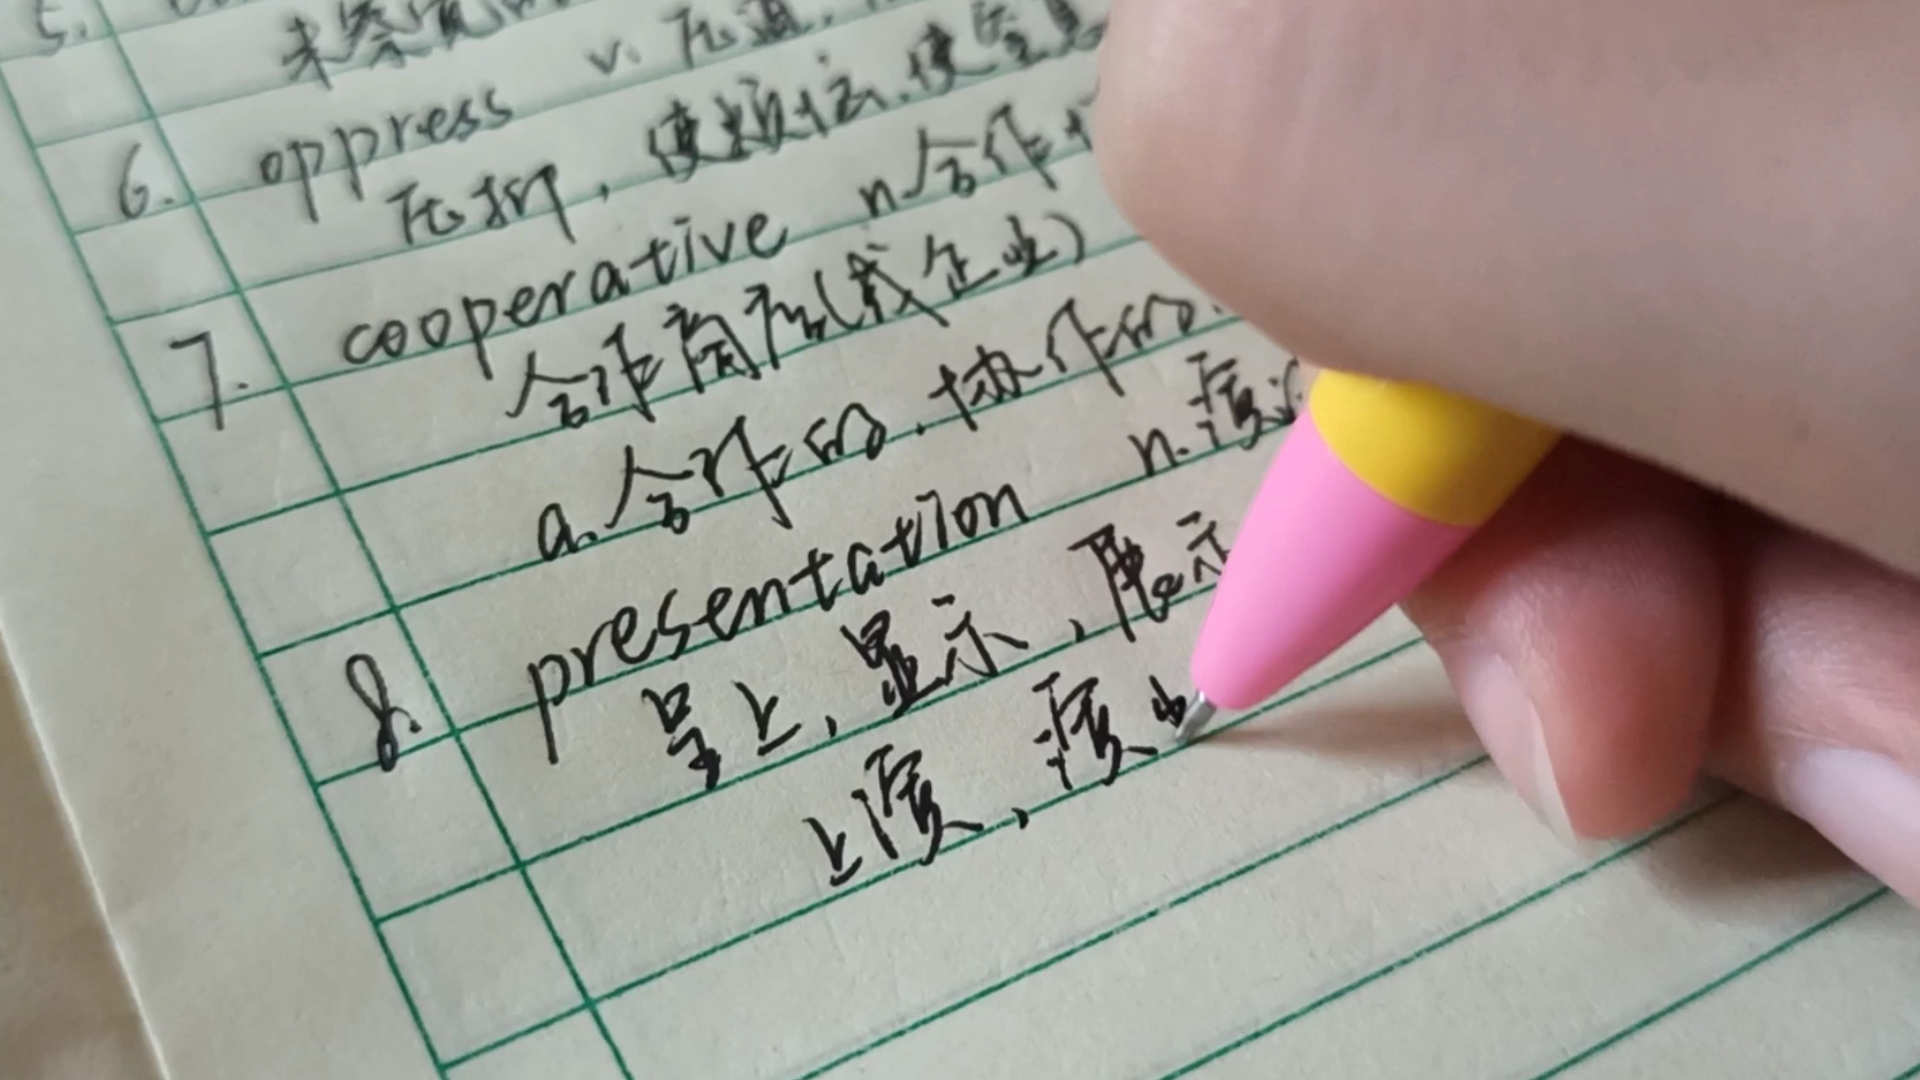 5.
未察觉的
6. oppress v. 压迫,
压抑,使烦恼,使窒息
7. cooperative n 合作
合作商店(或企业)
a. 合作的.协作的.
8. presentation n. 演
呈上,显示,展示
上演,演出